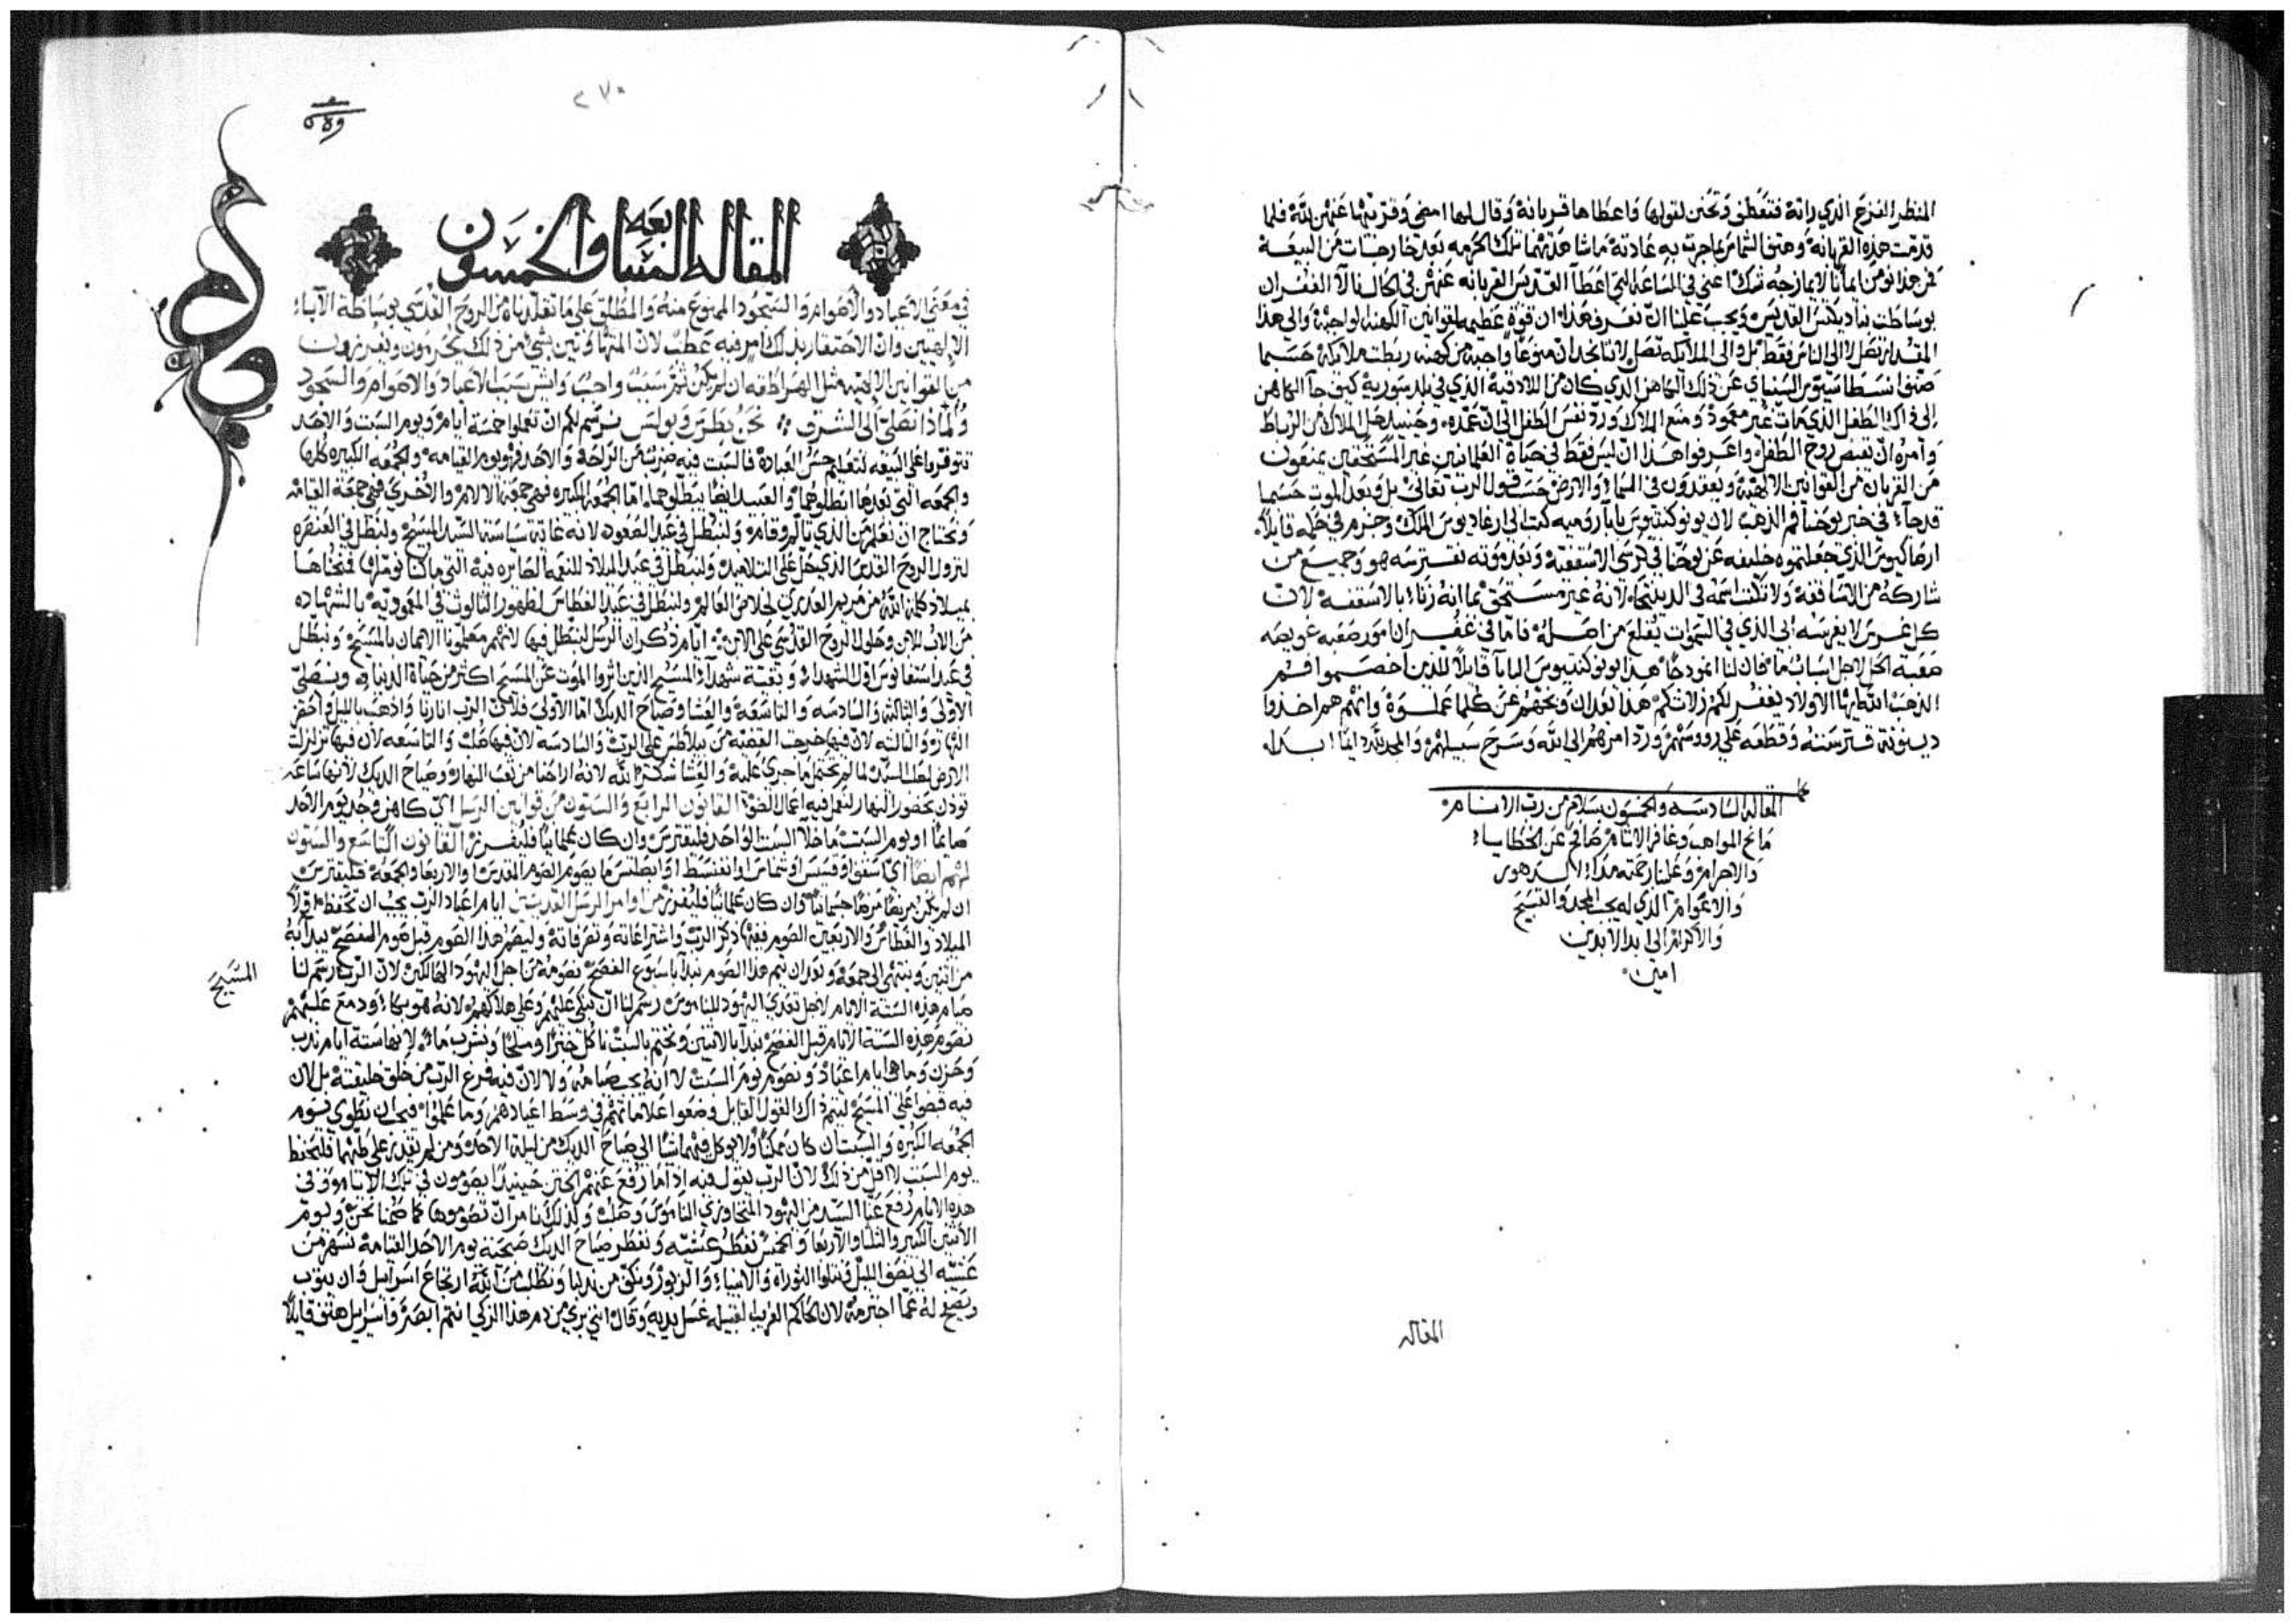 المنظر الفزع الذي راته فتعطف وتحنن لقولها واعطاها قربانة وقال لها امضي وقربيها عنهن لله فلما
قدمت هذه القربانة وهتف الشماس بما جرت به عادته ما شاهدتهما تلك الحرمه بعد خارجتات من البيعة
فمن هذا نومن ايمانا لا يمازجه شك اعني في الساعة التي اعطا القديس القربانه عنهن في الحال نالا الغفران
بوساطت بناديكتس القديس ويجب علينا ان نعرف هذا ان قوة عظيمه لقوانين الكهنه لواجبة والى هذا
المقدار تصل لا الى الناس فقط بل والى الملايكه تصل لاننا نجد ان منوعا واجبه من كهنه ربطت ملايكة حسبما
صنف انسطاسيوس السينايي عن ذلك الكاهن الذي كان من اللادقية الذي في بلد سورية كيف جا الكاهن
الى ذاك الطفل الذي مات غير معمود ومنع الملاك ورد نفس الطفل الى ان عمده وحينيد حل الملاك من الرباط
وامره ان يقبض روح الطفل واعرفوا هذا ان ليس فقط في حياة العلمانيين غير المستحقين يمنعون
من القربان من القوانين الالهية ويعقدون في السماء والارض حسب قول الرب تعالى بل وبعد الموت حسبما
قد جاء في خبر يوحنا فم الذهب لان يونوكنديوس بابا رومية كتب الى ارغاديوس الملك وجزم في حكمه قايلا
ارصاكيوس الذي جعلتموه خليفه عن يوحنا في كرسي الاسقفية وبعد موته نقترسه هو وجميع من
شاركه من الاساقفة ولا تكتب اسمه في الديبتيخا لانه غير مستحق بما انه زناء بالاسقفه لان
كل غرس لا يغرسه ابي الذي في السموات يقلع من اصله فاما في غفران امور صعبه عويصه
صعبة الحل لاجل اسباب ما فان لنا انموذجا هذا يونوكنديوس البابا قايلا للذين اخصموا فم
الذهب الله ايها الاولاد يغفر لكم زلاتكم هذا بعد ان وبخهم عن كلما عملوه وانهم هم اخذوا
دينونة قترسته وقطعه على رووسهم ورد امرهم الى الله وسرح سبيلهم والمجد لله دايما ابدا
المقاله السادسه والخمسون بسلام من رب الانام
مانح المواهب وغافر الاثام صافح عن الخطايا
والاجرام وعلينا رحمته مدا الدهور
والاعوام الذي له يجب المجد والتسبيح
والاكرام الى ابد الابدين
امين
المقاله
٢٧٠
المقالة السابعه والخمسون
في معنى الاعياد والاصوام والسجود الممنوع منه والمطلق على ما تقلدناه من الروح القدسي بوساطة الآباء
الالهيين وان الاحتقار بذلك امر فيه عطب لان المتهاونين بشي من ذلك يحرمون ويفرزون
من القوانين الالهيه مثل الهراطقه ان لم يكن ثم سبب واجب وايش سبب الاعياد والاصوام والسجود
ولماذا نصلي الى الشرق نحن بطرس وبولس نرسم لكم ان تعملوا خمسة ايام ويوم السبت والاحد
تتوفروا على البيعه لتعليم حسن العبادة فالسبت فيه ضرب من الراحة والاحد فهو يوم القيامه والجمعه الكبيره كلها
والجمعه التي بعدها ابطلوهما والعبيد ايضا يبطلوهما اما الجمعه الكبيره فهي جمعة الالام والاخرى فهي جمعة القيامه
ونحتاج ان نعلم من الذي تالم وقام وليبطل في عيد الصعود لانه غاية سياسة السيد المسيح وليبطل في العنصره
لنزول الروح القدس الذي حل على التلاميذ وليبطل في عيد الميلاد للنعمه الصايره فيه التي ما كنا نوملها فمنحناها
بميلاد كلمة الله من مريم العذري لخلاص العالم وليبطل في عيد الغطاس لظهور الثالوث في المعمودية بالشهاده
من الاب للابن وحلول الروح القدسي على الابن ايام ذكران الرسل ليبطل فيها لانهم معلمونا الايمان بالمسيح ونبطل
في عيد استفانوس اول الشهداء وبقية شهداء المسيح الذين اثروا الموت عن المسيح اكثر من حياة الدنيا ونصلي
الاولى والثالثه والسادسه والتاسعة والعشا وصياح الديك اما الاولى فلان الرب انارنا واذهب بالليل واحضر
النهار والثالثه لان فيها خرجت القضيه من بيلاطس على الرب والسادسه لان فيها صلب والتاسعه لان فيها تزلزلت
الارض لصلب السيد لما لم تحتمل ما جرى عليه والعشا شكرا لله لانه اراحنا من تعب النهار وصياح الديك لانها ساعة
توذن بحضور النهار لنعمل فيه اعمال الضوء القانون الرابع والستون من قوانين الرسل اي كاهن وجد يوم الاحد
صايما او يوم السبت ما خلا السبت الواحد فليقترس وان كان علمانيا فليفرز القانون التاسع والستون
لهم ايضا اي اسقف او قسيس او شماس او انغنسط او ابصلتس ما يصوم الصوم المقدس او الاربعا والجمعة فليقترس
ان لم يكن مريضا مرضا جسمانيا وان كان علمانيا فليفرز من اوامر الرسل القديسين ايام اعياد الرب يجب ان تحفظ اولا
الميلاد والغطاس والاربعين الصوم ففيها ذكر الرب واشتراعاته وتصرفاته وليصم هذا الصوم قبل صوم الفصح يبدا به
من اثنين وينتهي الى جمعه وبعد ان يتم هذا الصوم نبدا باسبوع الفصح نصومه من اجل اليهود الهالكين لان الرب رسم لنا
صيام هذه الستة الايام لاجل تعدي اليهود للناموس رسم لنا ان نبكي عليهم وعلى هلاكهم لانه هو بكا ودمع عليهم
المسيح
نصوم هذه الستة الايام قبل الفصح نبدا بالاثنين ونختم بالسبت ناكل خبزا وملحا ونشرب ماء لانها ستة ايام ندب
وحزن وما هي ايام اعياد ونصوم يوم السبت لا انه يجب صيامه ولا لان فيه فرغ الرب من خلق خليقته بل لان
فيه قبضوا على المسيح ليتم ذاك القول القايل وضعوا علاماتهم في وسط اعيادهم وما علموا فيجب ان يطوى يوم
الجمعه الكبيره والسبت ان كان ممكنا ولا يوكل فيهما شا الى صياح الديك من ليلة الاحد ومن لم يقدر على طيهما فليحفظ
يوم السبت لا اقل من ذلك لان الرب يقول فيه اذا ما رفع عنهم الختن حينيذ يصومون في تلك الايام وفي
هذه الايام رفع عنا السيد من اليهود المتجاوزي الناموس وصلب ولذلك نامر ان تصوموها كما صمنا نحن ويوم
الاثنين الكبير والثلثا والاربعا والخميس نفطر عشيه ونفطر صياح الديك صحية يوم الاحد القيامة نسهر من
عشيه الى نصف الليل ونتلوا التوراة والانبياء والزبور ونكف من ندبنا ونطلب من الله ارتجاع اسرائيل وان يتوب
ويصفح له عما اجترمه لان الحاكم الغريب القبيله غسل يديه وقال انني بري من دم هذا الزكي انتم ابصروا واسرايل هتف قايلا